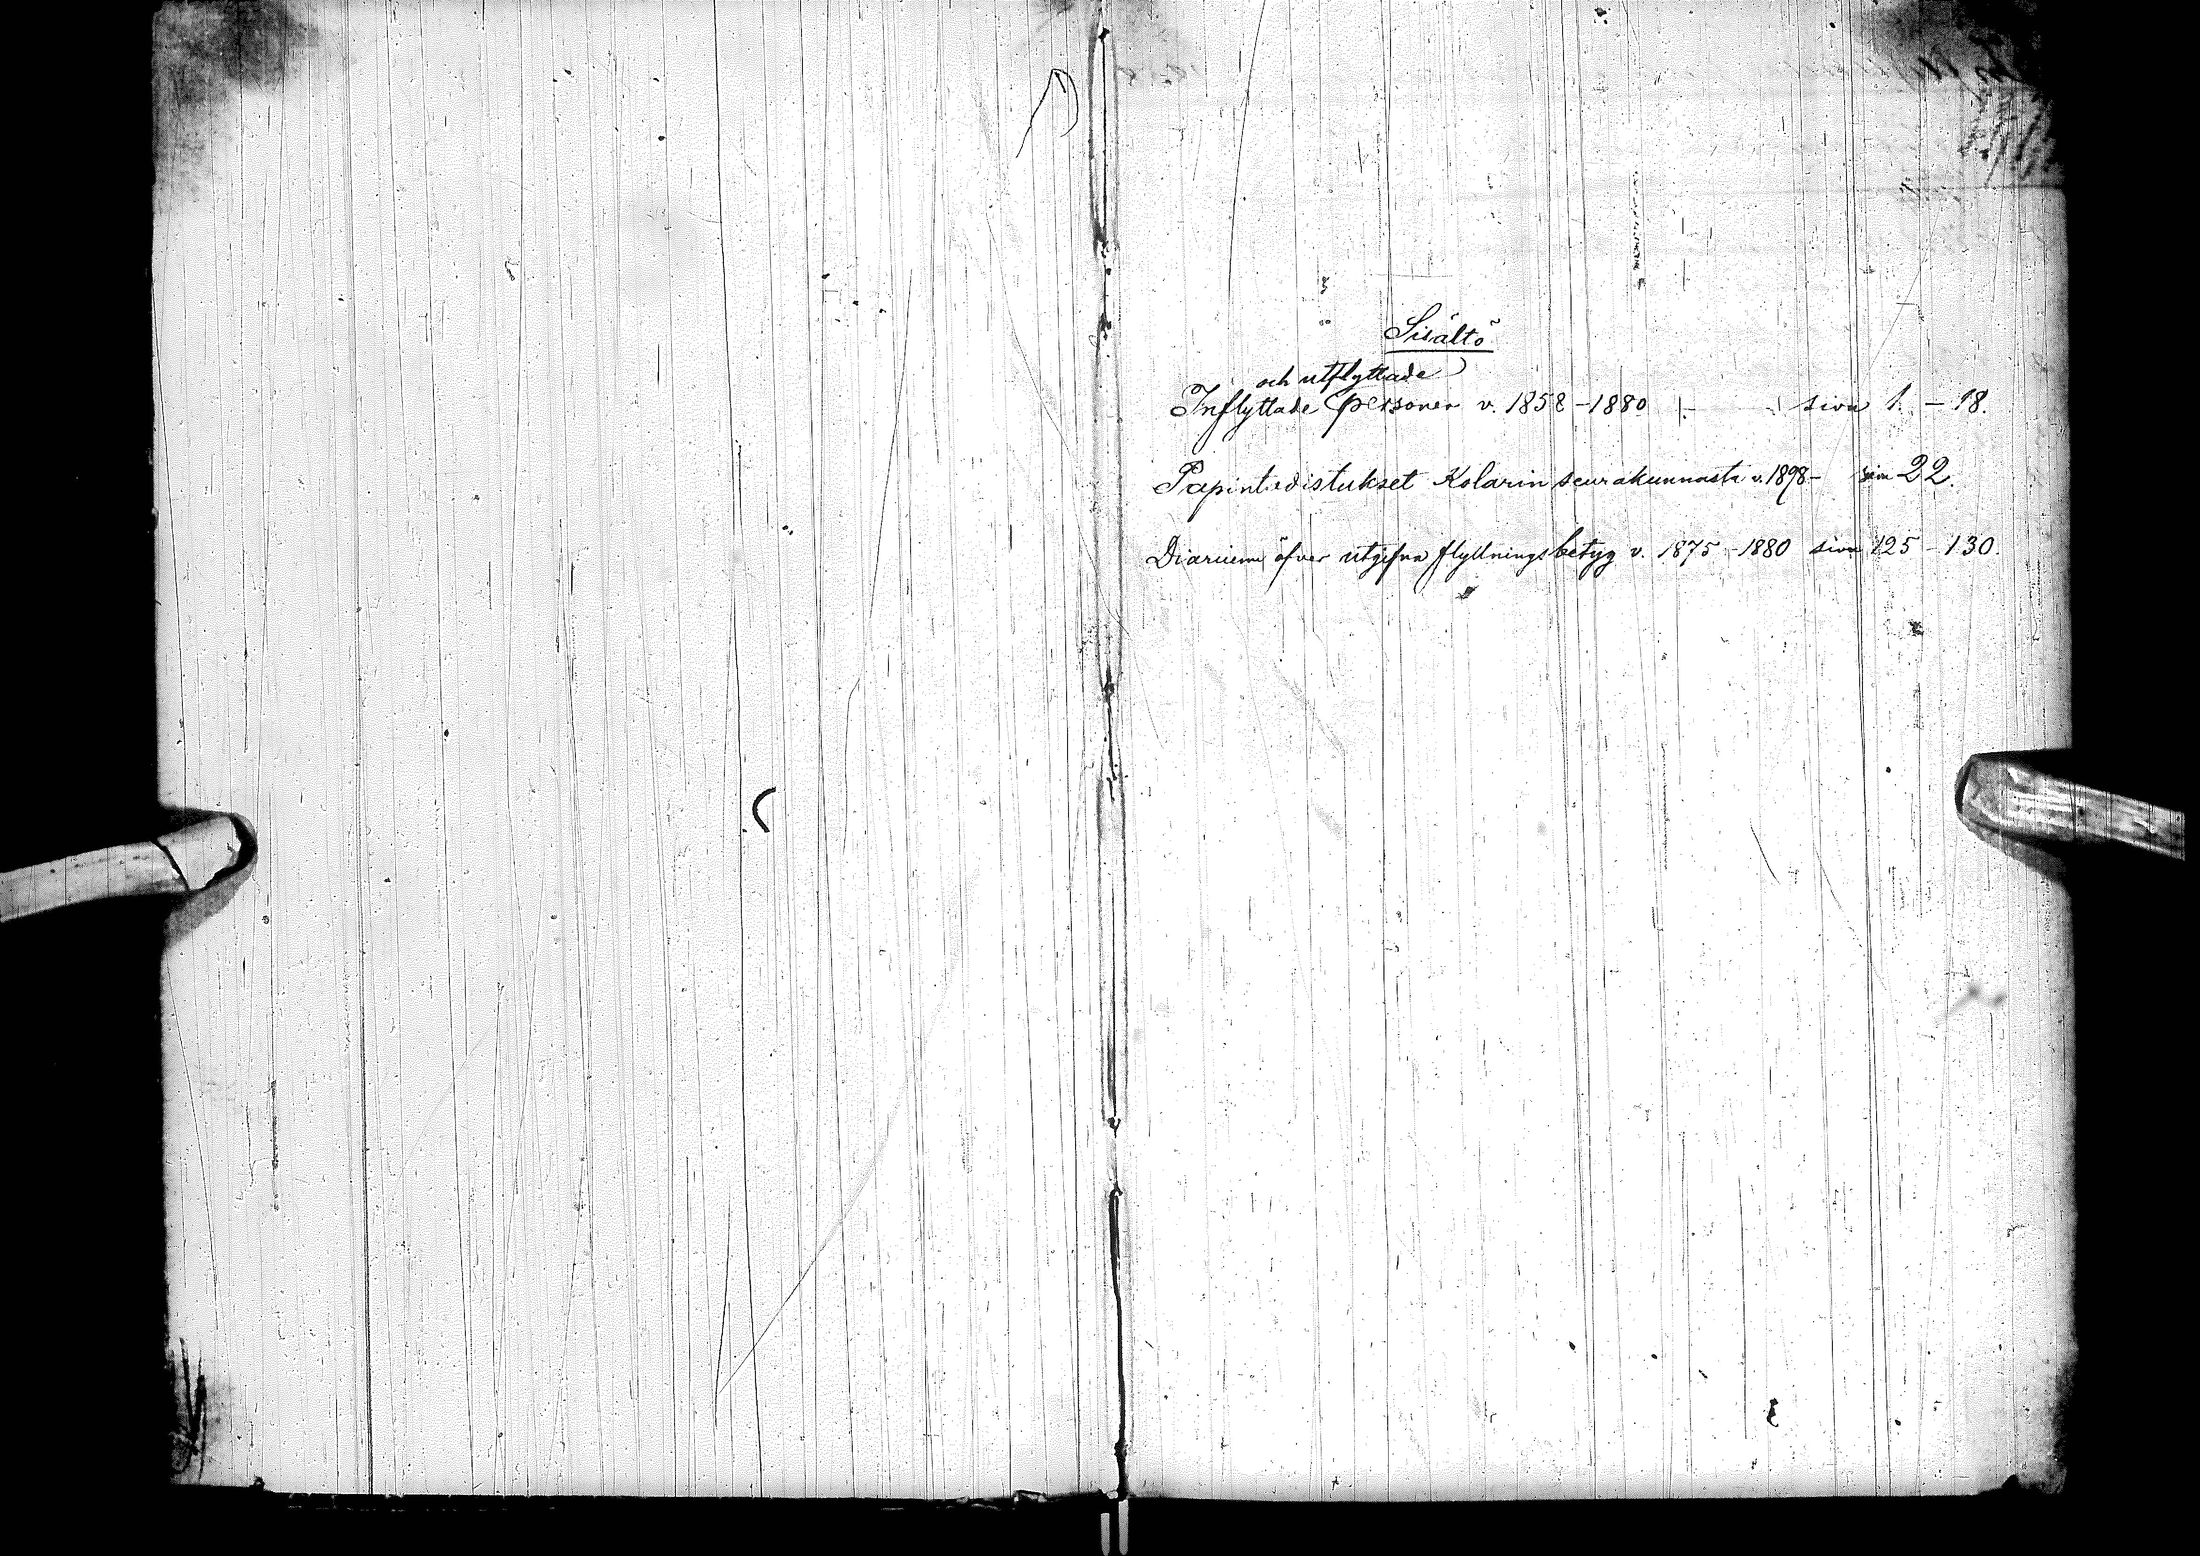 Sisältö
och utflyttade
Inflyttade personer v. 1858-1880 sivu 1. - 18.
Papintodistukset Kolarin seurakunnasta v. 1898- sivu 22.
Diarium öfver utgifna flyttningsbetyg v. 1875-1880 sivu 125-130.